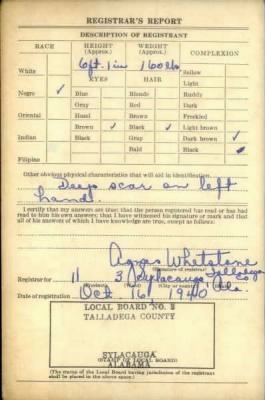 REGISTRAR'S REPORT
DESCRIPTION OF REGISTRANT
RACE HEIGHT (Approx.) WEIGHT (Approx.) COMPLEXION
White 6ft. 1in 160 lbs Sallow
EYES HAIR Light
Negro ✓ Blue Blonde Ruddy
Gray Red Dark
Oriental Hazel Brown Freckled
Brown ✓ Black ✓ Light brown
Indian Black Gray Dark brown ✓
Bald Black
Filipino
Other obvious physical characteristics that will aid in identification
Deep scar on left
hand.
I certify that my answers are true; that the person registered has read or has had
read to him his own answers; that I have witnessed his signature or mark and that
all of his answers of which I have knowledge are true, except as follows:
Agnes Whetstone
(Signature of registrar)
Registrar for 11 3 Sylacauga Talladega Co Ala.
(Precinct) (Ward) (City or county) (State)
Date of registration Oct. 16, 1940
LOCAL BOARD No. 2
TALLADEGA COUNTY
SYLACAUGA
(STAMP OF LOCAL BOARD)
ALABAMA
(The stamp of the Local Board having jurisdiction of the registrant
shall be placed in the above space.)